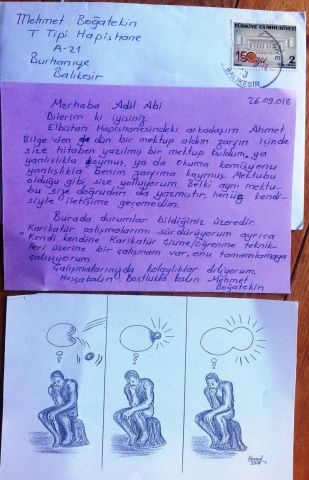 Mehmet Boğatekin
T Tipi Hapishane
A-21
Burhaniye
Balıkesir
TÜRKİYE CUMHURİYETİ
150
2
BALIKESİR
26.09.018
Merhaba Adil Abi
Dilerim ki iyisiniz.
Elbistan Hapishanesindeki arkadaşım Ahmet
Bilge'den dün bir mektup aldım zarfın içinde
size hitaben yazılmış bir mektup buldum. ya
yanlışlıkla koymuş, ya da okuma komisyonu
yanlışlıkla benim zarfıma koymuş. Mektubu
olduğu gibi size yolluyorum. Belki aynı mektu-
bu size doğrudan da yazmıştır, henüz kendi-
siyle iletişime geçemedim.
Burada durumlar bildiğiniz üzeredir.
Karikatür çalışmalarımı sürdürüyorum ayrıca
"Kendi kendine Karikatür Çizme/öğrenme teknik-
leri üzerine bir çalışmam var, onu tamamlamaya
çalışıyorum
Çalışmalarınızda kolaylıklar diliyorum.
Hoşçakalın. Dostlukla kalın Mehmet
Boğatekin
2018